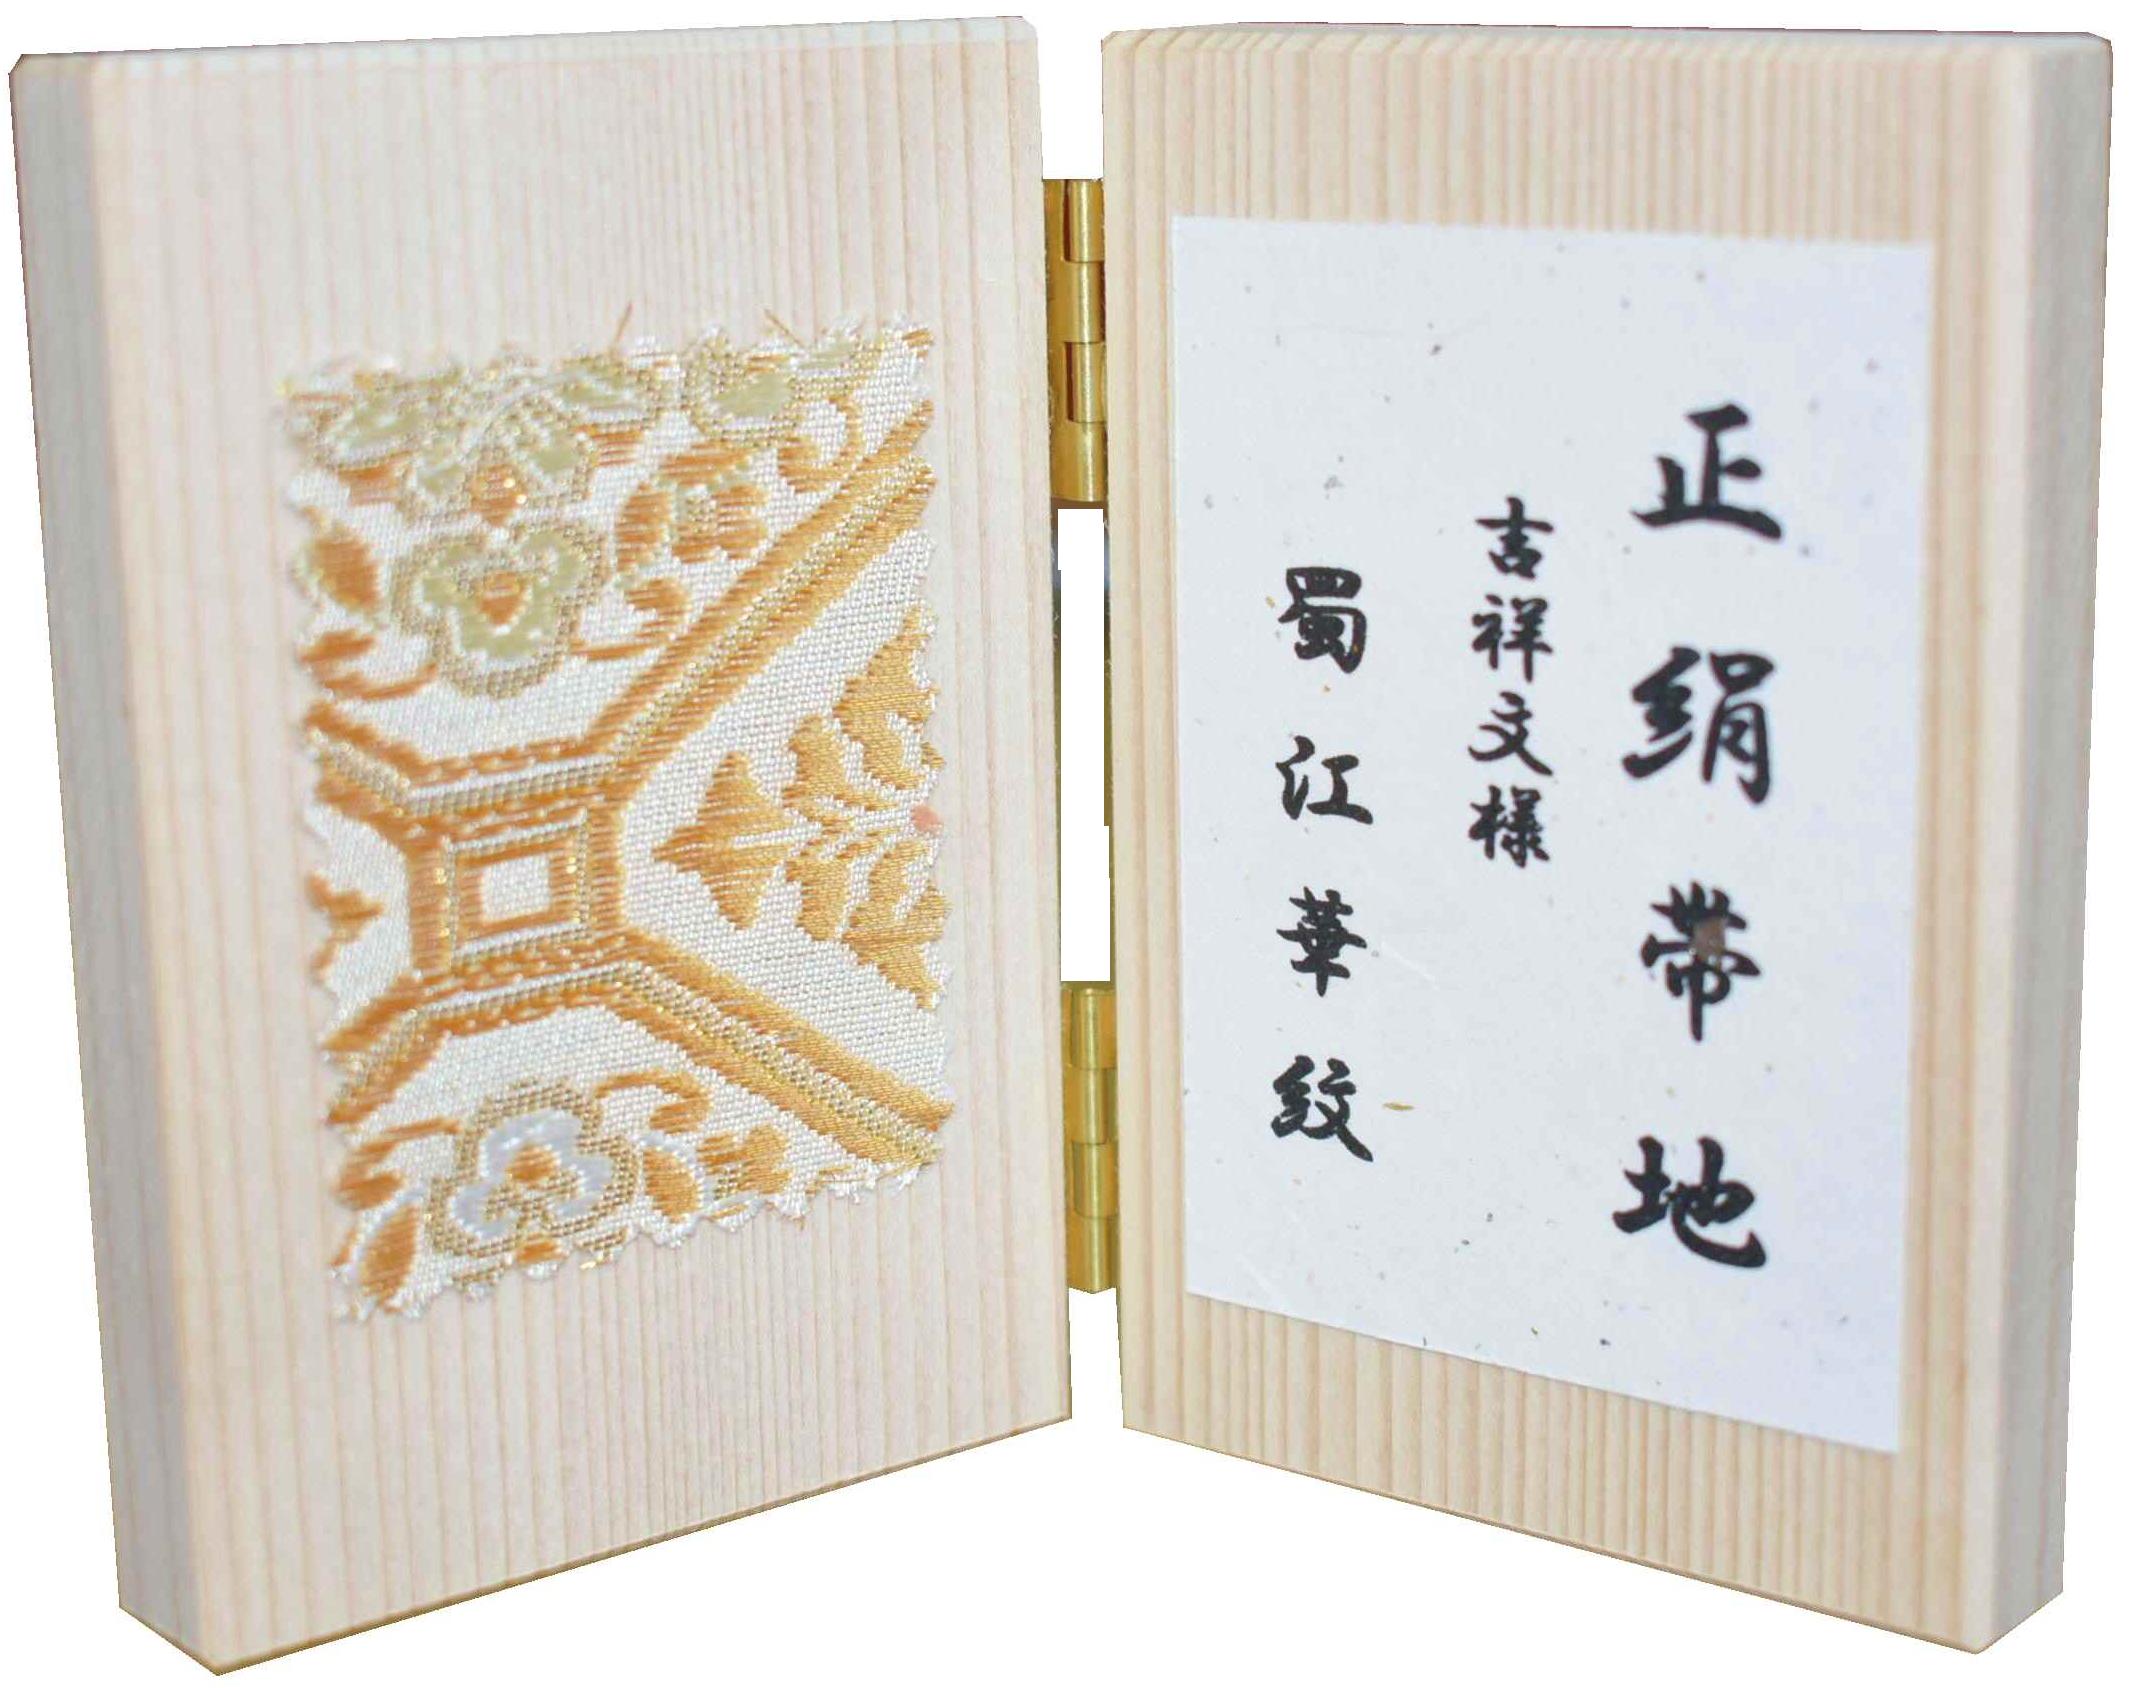 正絹帯地
吉祥文様
蜀江華紋